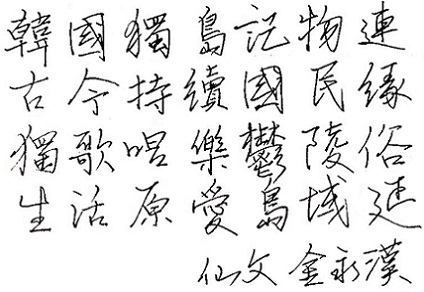 韓國獨島記物連
古今持續國民緣
獨歌唱樂鬱陵俗
生活原愛島域延
仙文 金永漢